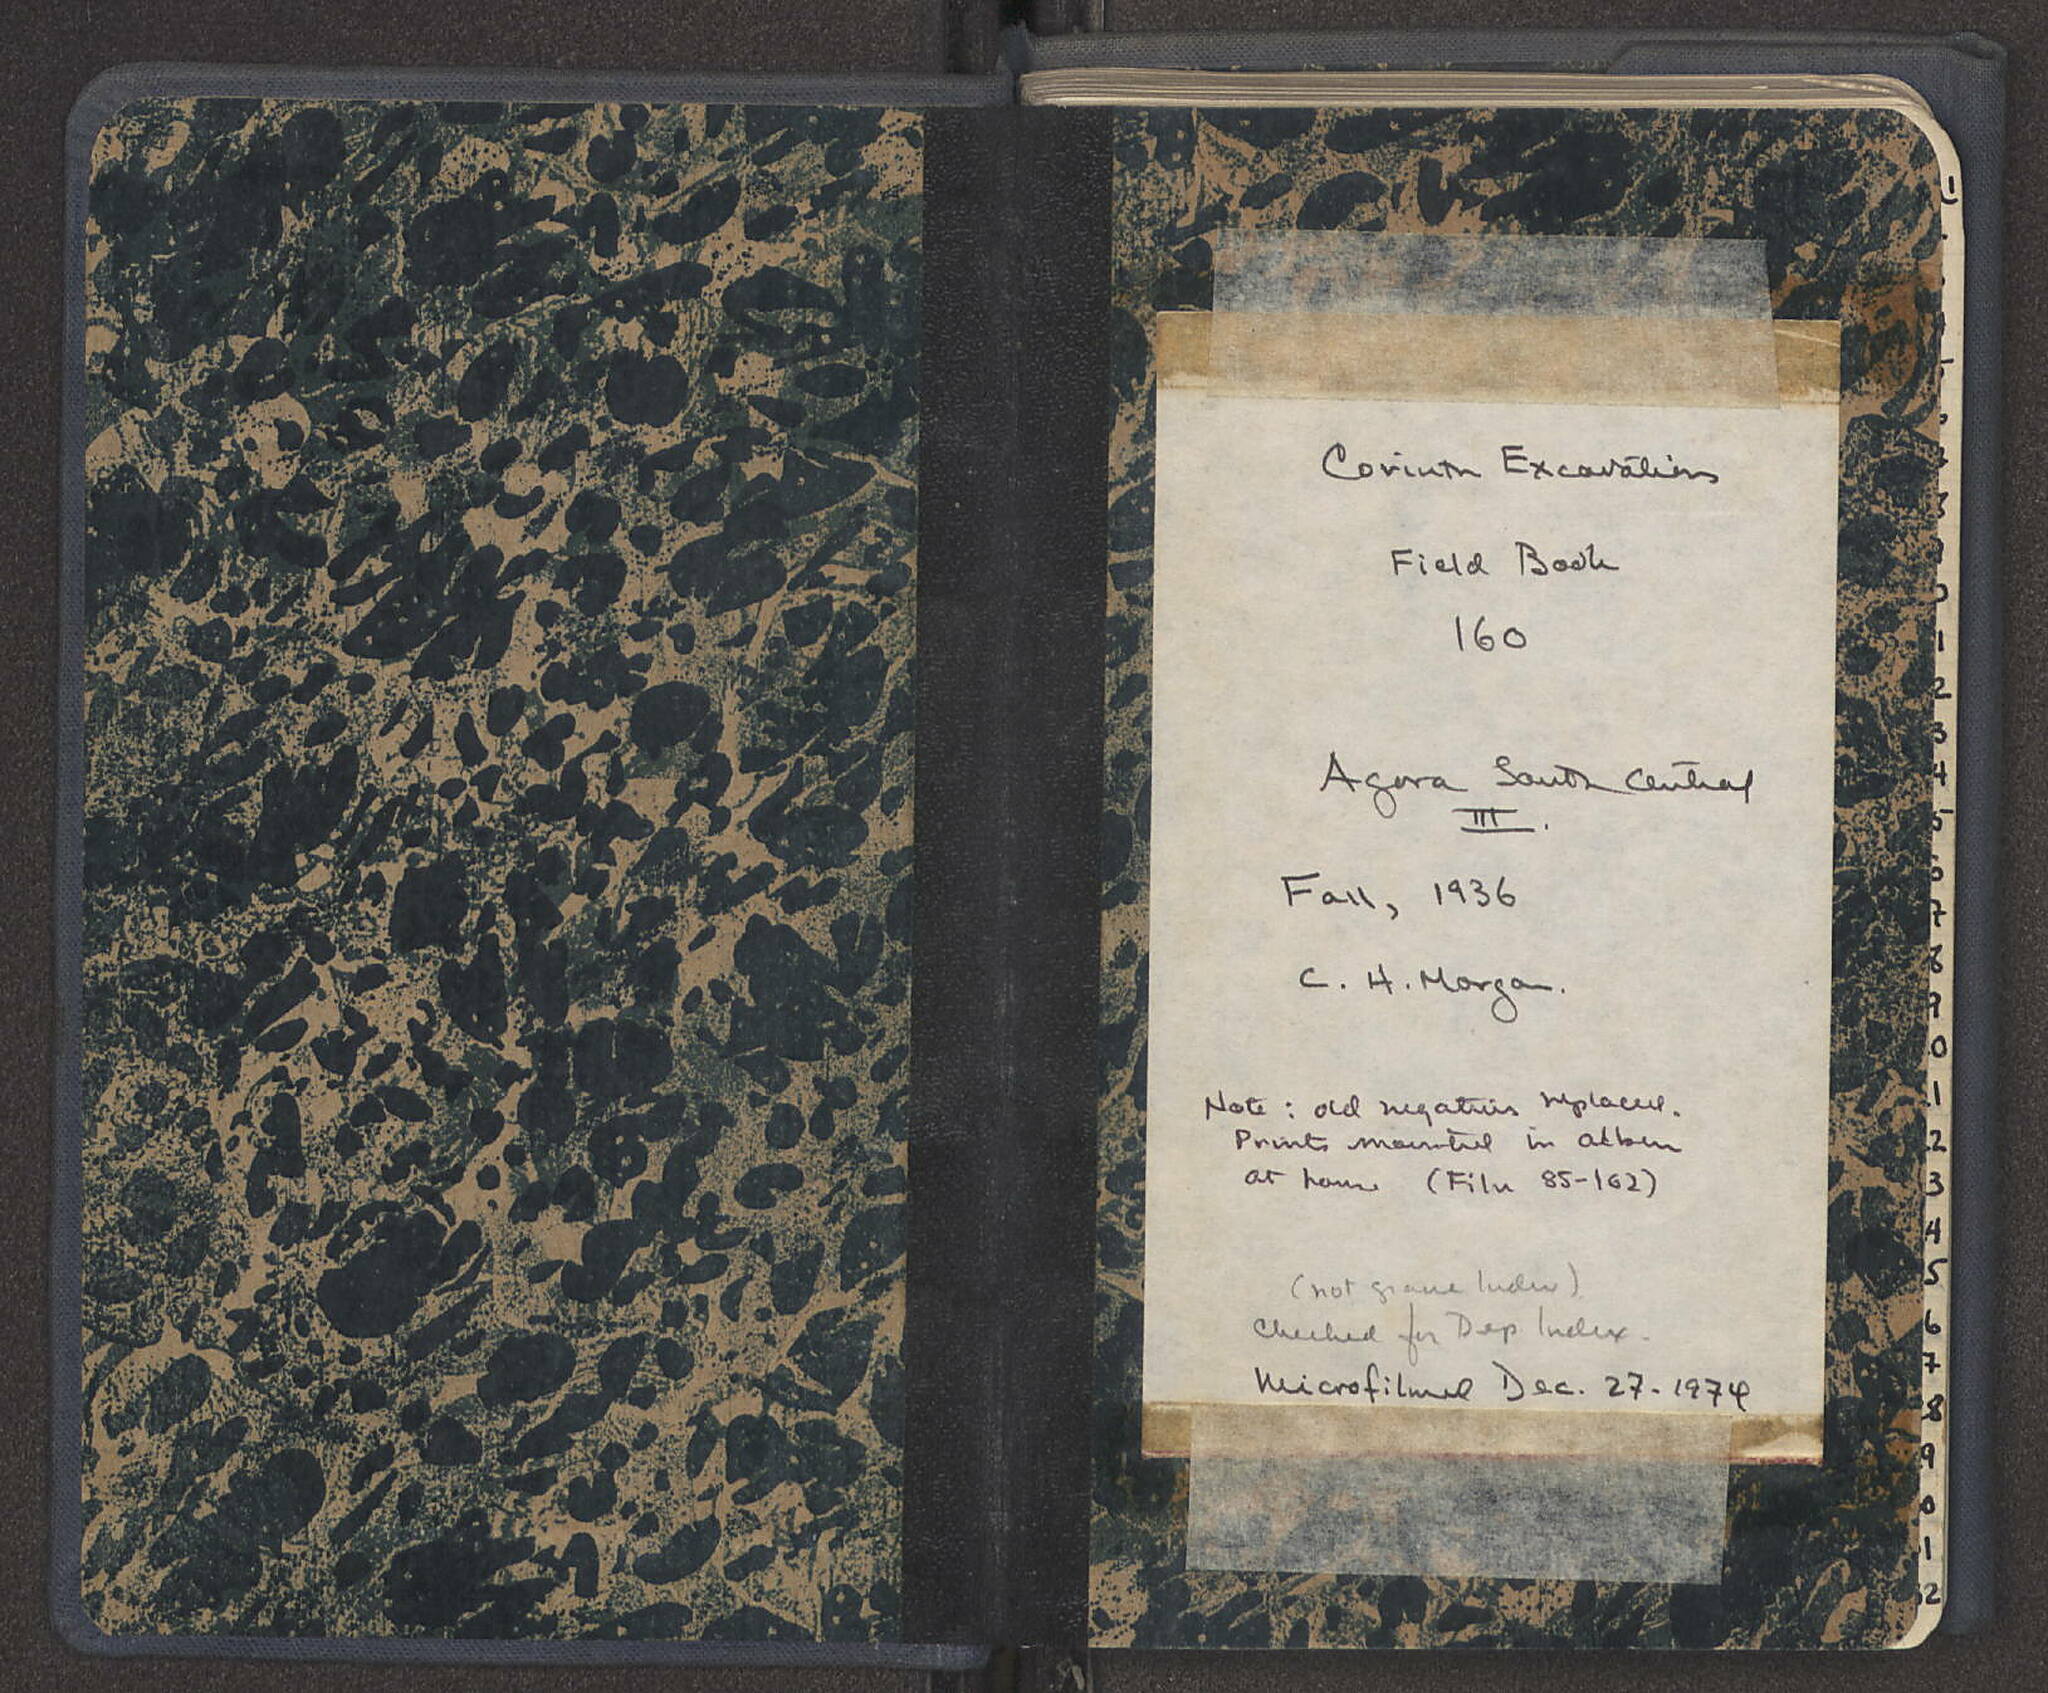 Corinth Excavations
Field Book
160
Agora South Central
III.
Fall, 1936
C. H. Morgan.
Note: old negatives replaced.
Prints mounted in album
at home (Film 85-162)
(not grave Index)
Checked for Dep Index.
Microfilmed Dec. 27-1974